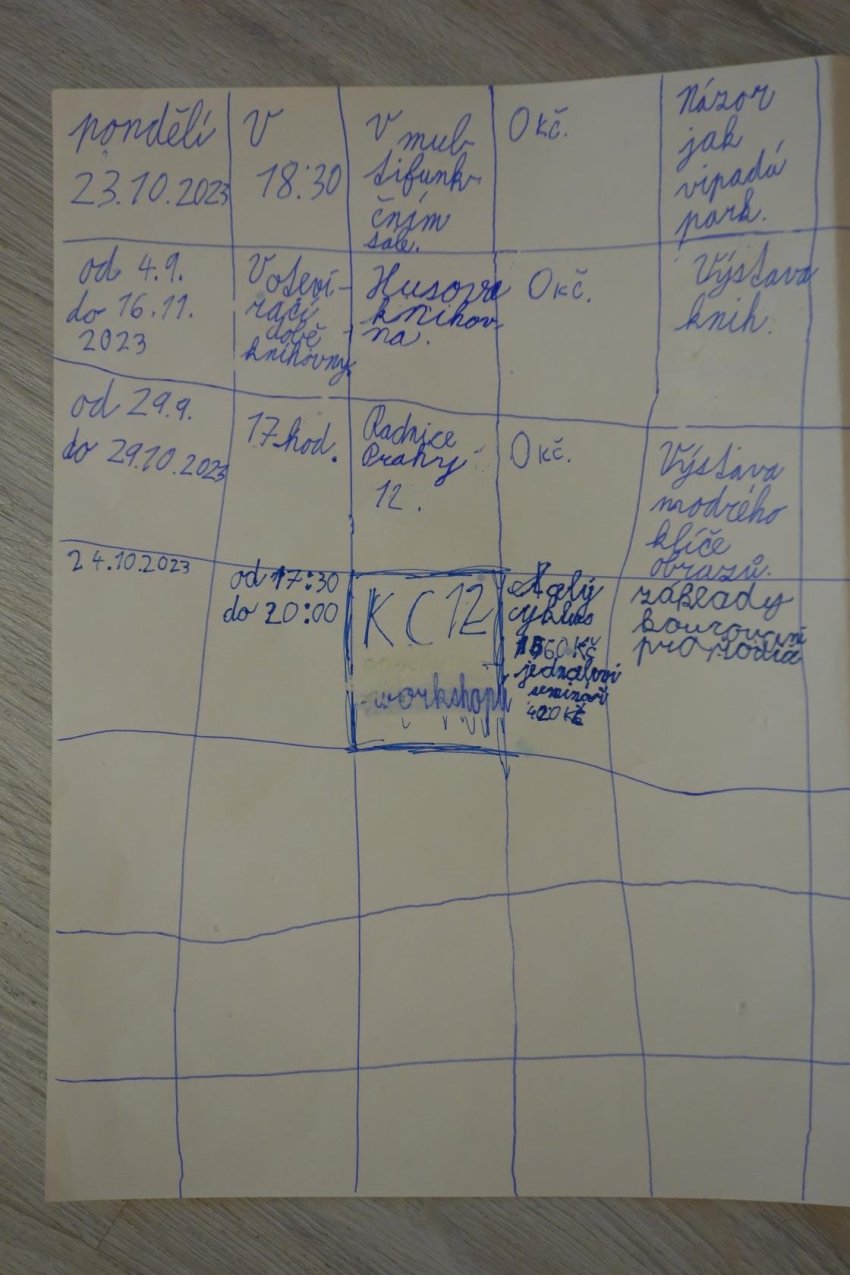 pondělí
23.10.2023
V
18:30
V mul-
tifunk-
čním
sále.
0 kč.
Názor
jak
vipadá
park.
od 4.9.
do 16.11.
2023
V oteví-
rací
době
knihovny.
Husova
knihov
na.
0 kč.
Výstava
knih.
od 29.9.
do 29.10.2023
17 hod.
Radnice
Prahy
12.
0 kč.
Výstava
modrého
klíče
obrazů.
24.10.2023
od 17:30
do 20:00
KC12
workshopy
cyklus
1560 Kč
jednotliví
semináři
420 Kč
základy
koučování
pro rodiče